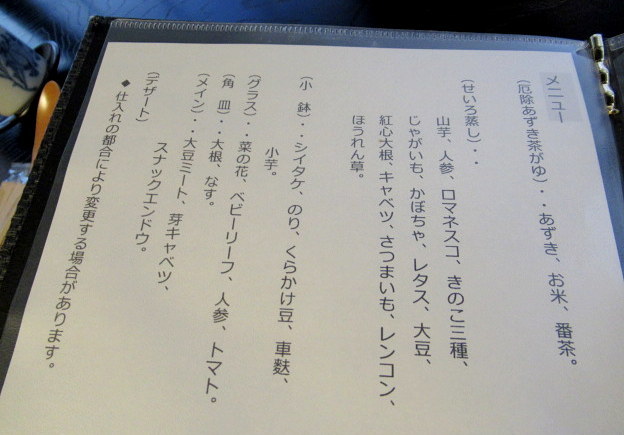 メニュー
(厄除あずき茶がゆ)・・あずき、お米、番茶。
(せいろ蒸し)・・
山芋、人参、ロマネスコ、きのこ三種、
じゃがいも、かぼちゃ、レタス、大豆、
紅心大根、キャベツ、さつまいも、レンコン、
ほうれん草。
(小 鉢)・・シイタケ、のり、くらかけ豆、車麩、
小芋。
(グラス)・・菜の花、ベビーリーフ、人参、トマト。
(角 皿)・・大根、なす。
(メイン)・・大豆ミート、芽キャベツ、
スナックエンドウ。
(デザート)
◆ 仕入れの都合により変更する場合があります。